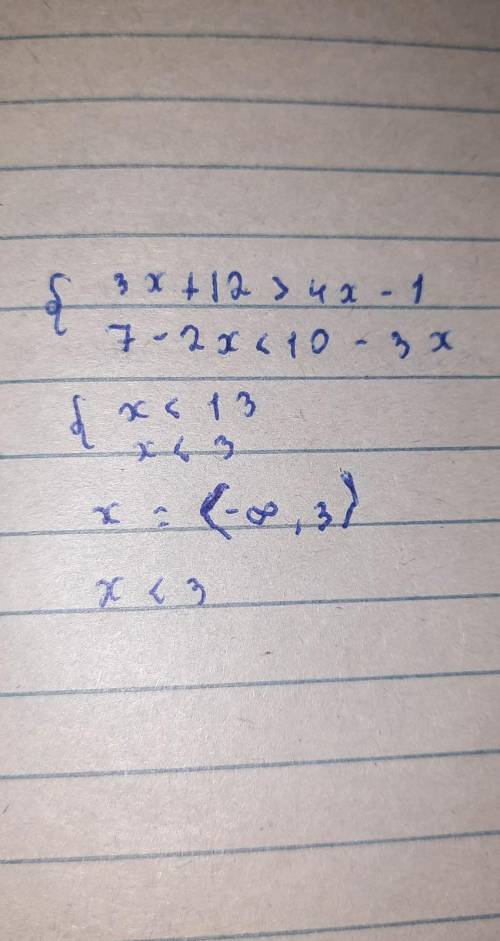 { 3x + 12 > 4x - 1
7 - 2x < 10 - 3x
{ x < 13
x < 3
x = (-∞, 3)
x < 3